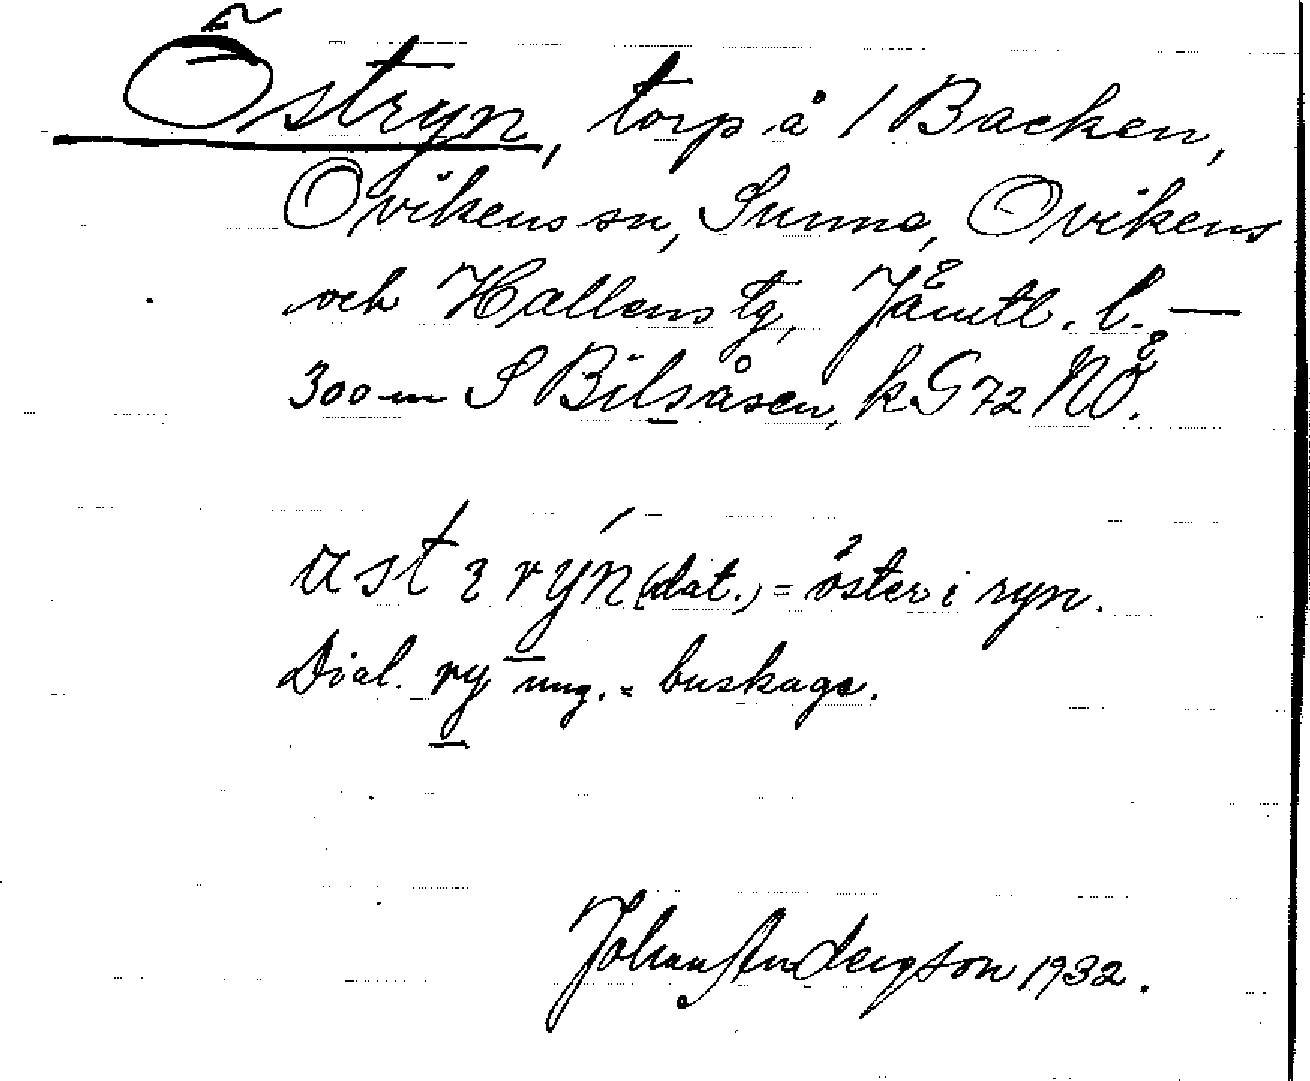 Östryn, torp å 1 Backen,
Ovikens sn, Sunne, Ovikens
och Hallens tg, Jämtl. l. —
300 m S Bilsåsen, k G 72 NÖ.
(dat.) = öster i ryn.
Dial. ry ung. = buskage.
Johan Anderson 1932.